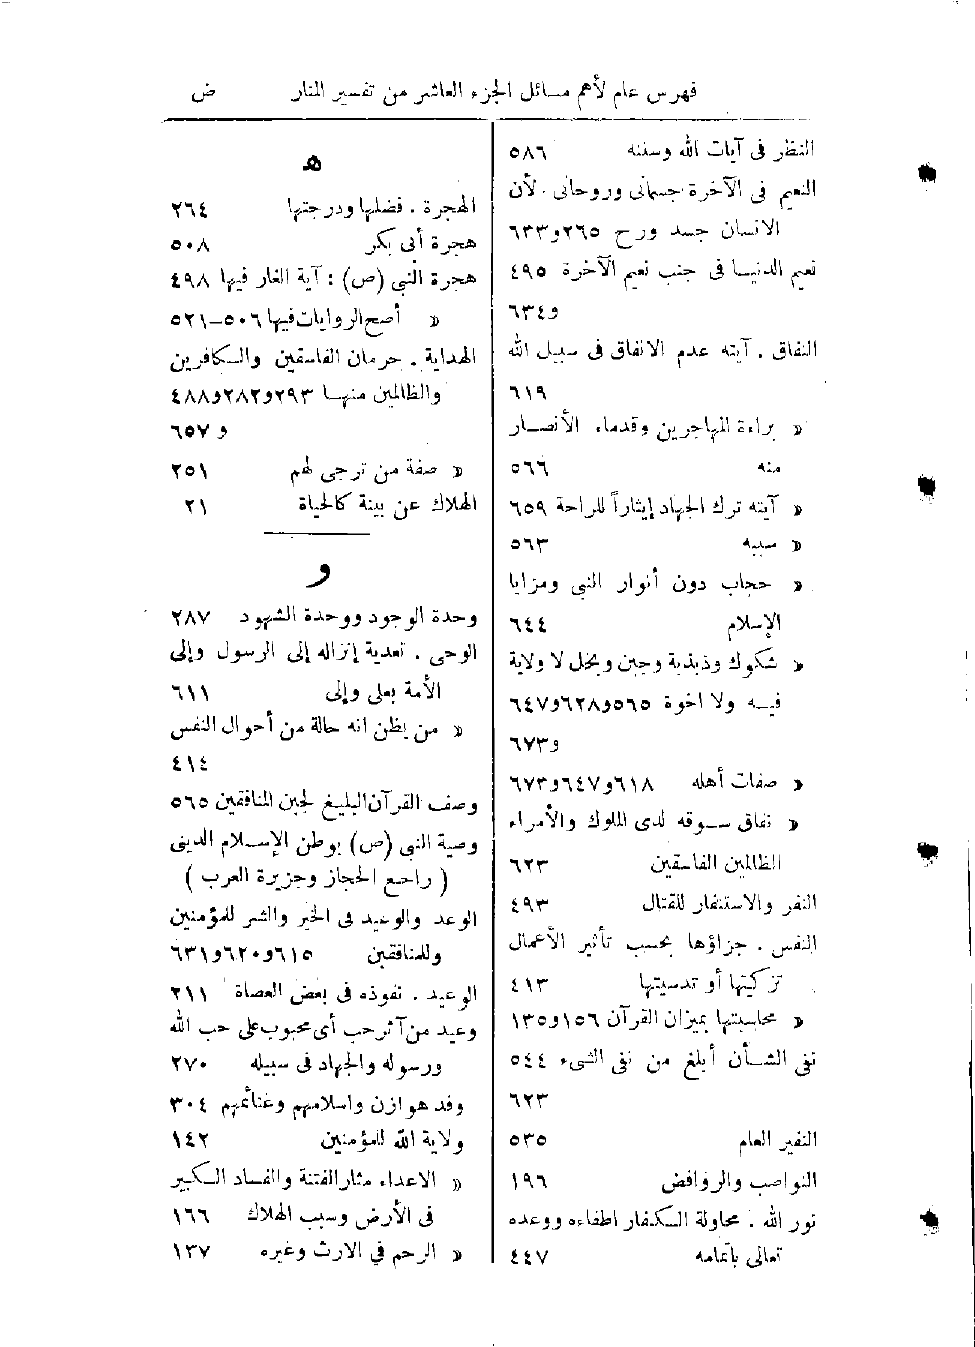 فهرس عام لأهم مسائل الجزء العاشر من تفسير المنار ض
النظر فى آيات الله وسننه ٥٨٦
النعيم فى الآخرة جسمانى وروحانى . لأن
الانسان جسد ورح ٢٦٥ و٦٣٣
نعيم الدنيا فى جنب نعيم الآخرة ٤٩٥
و٦٣٤
النفاق . آيته عدم الانفاق فى سبيل الله
٦١٩
« براءة المهاجرين وقدماء الأنصار
منه ٥٦٦
« آيته ترك الجهاد إيثاراً للراحة ٦٥٩
« سببه ٥٦٣
« حجاب دون أنوار النبى ومزايا
الإسلام ٦٤٤
« شكوك وذبذبة وجبن وبخل لا ولاية
فيه ولا اخوة ٥٦٥ و٦٢٨ و٦٤٧
و٦٧٣
« صفات أهله ٦١٨ و٦٤٧ و٦٧٣
« نفاق سوقه لدى الملوك والأمراء
الظالمين الفاسقين ٦٢٣
النفر والاستنفار للقتال ٤٩٣
النفس . جزاؤها بحسب تأثير الأعمال
تزكيتها أو تدسيتها ٤١٣
« محاسبتها بميزان القرآن ١٥٦ و١٣٥
نفى الشأن أبلغ من نفى الشىء ٥٤٤
٦٢٣
النفير العام ٥٣٥
النواصب والروافض ١٩٦
نور الله . محاولة الكفار اطفاءه ووعده
تعالى باتمامه ٤٤٧
ه
الهجرة . فضلها ودرجتها ٢٦٤
هجرة أبى بكر ٥٠٨
هجرة النبى (ص) : آية الغار فيها ٤٩٨
« أصح الروايات فيها ٥٠٦ــ٥٢١
الهداية . حرمان الفاسقين والكافرين
والظالمين منها ٢٩٣ و٢٨٢ و٤٨٨
و ٦٥٧
« صفة من ترجى لهم ٢٥١
الهلاك عن بينة كالحياة ٢١
و
وحدة الوجود ووحدة الشهود ٢٨٧
الوحى . تعدية إنزاله إلى الرسول وإلى
الأمة بعلى وإلى ٦١١
« من يظن انه حالة من أحوال النفس
٤١٤
وصف القرآن البليغ لجبن المنافقين ٥٦٥
وصية النبى (ص) بوطن الإسلام الدينى
( راجع الحجاز وجزيرة العرب )
الوعد والوعيد فى الخير والشر للمؤمنين
وللمنافقين ٦١٥ و٦٢٠ و٦٣١
الوعيد . نفوذه فى بعض العصاة ٢١١
وعيد من آثر حب أى محبوب على حب الله
ورسوله والجهاد فى سبيله ٢٧٠
وفد هوازن واسلامهم وغنائمهم ٣٠٤
ولاية الله للمؤمنين ١٤٢
« الاعداء مثار الفتنة والفساد الكبير
فى الأرض وسبب الهلاك ١٦٦
« الرحم في الارث وغيره ١٣٧